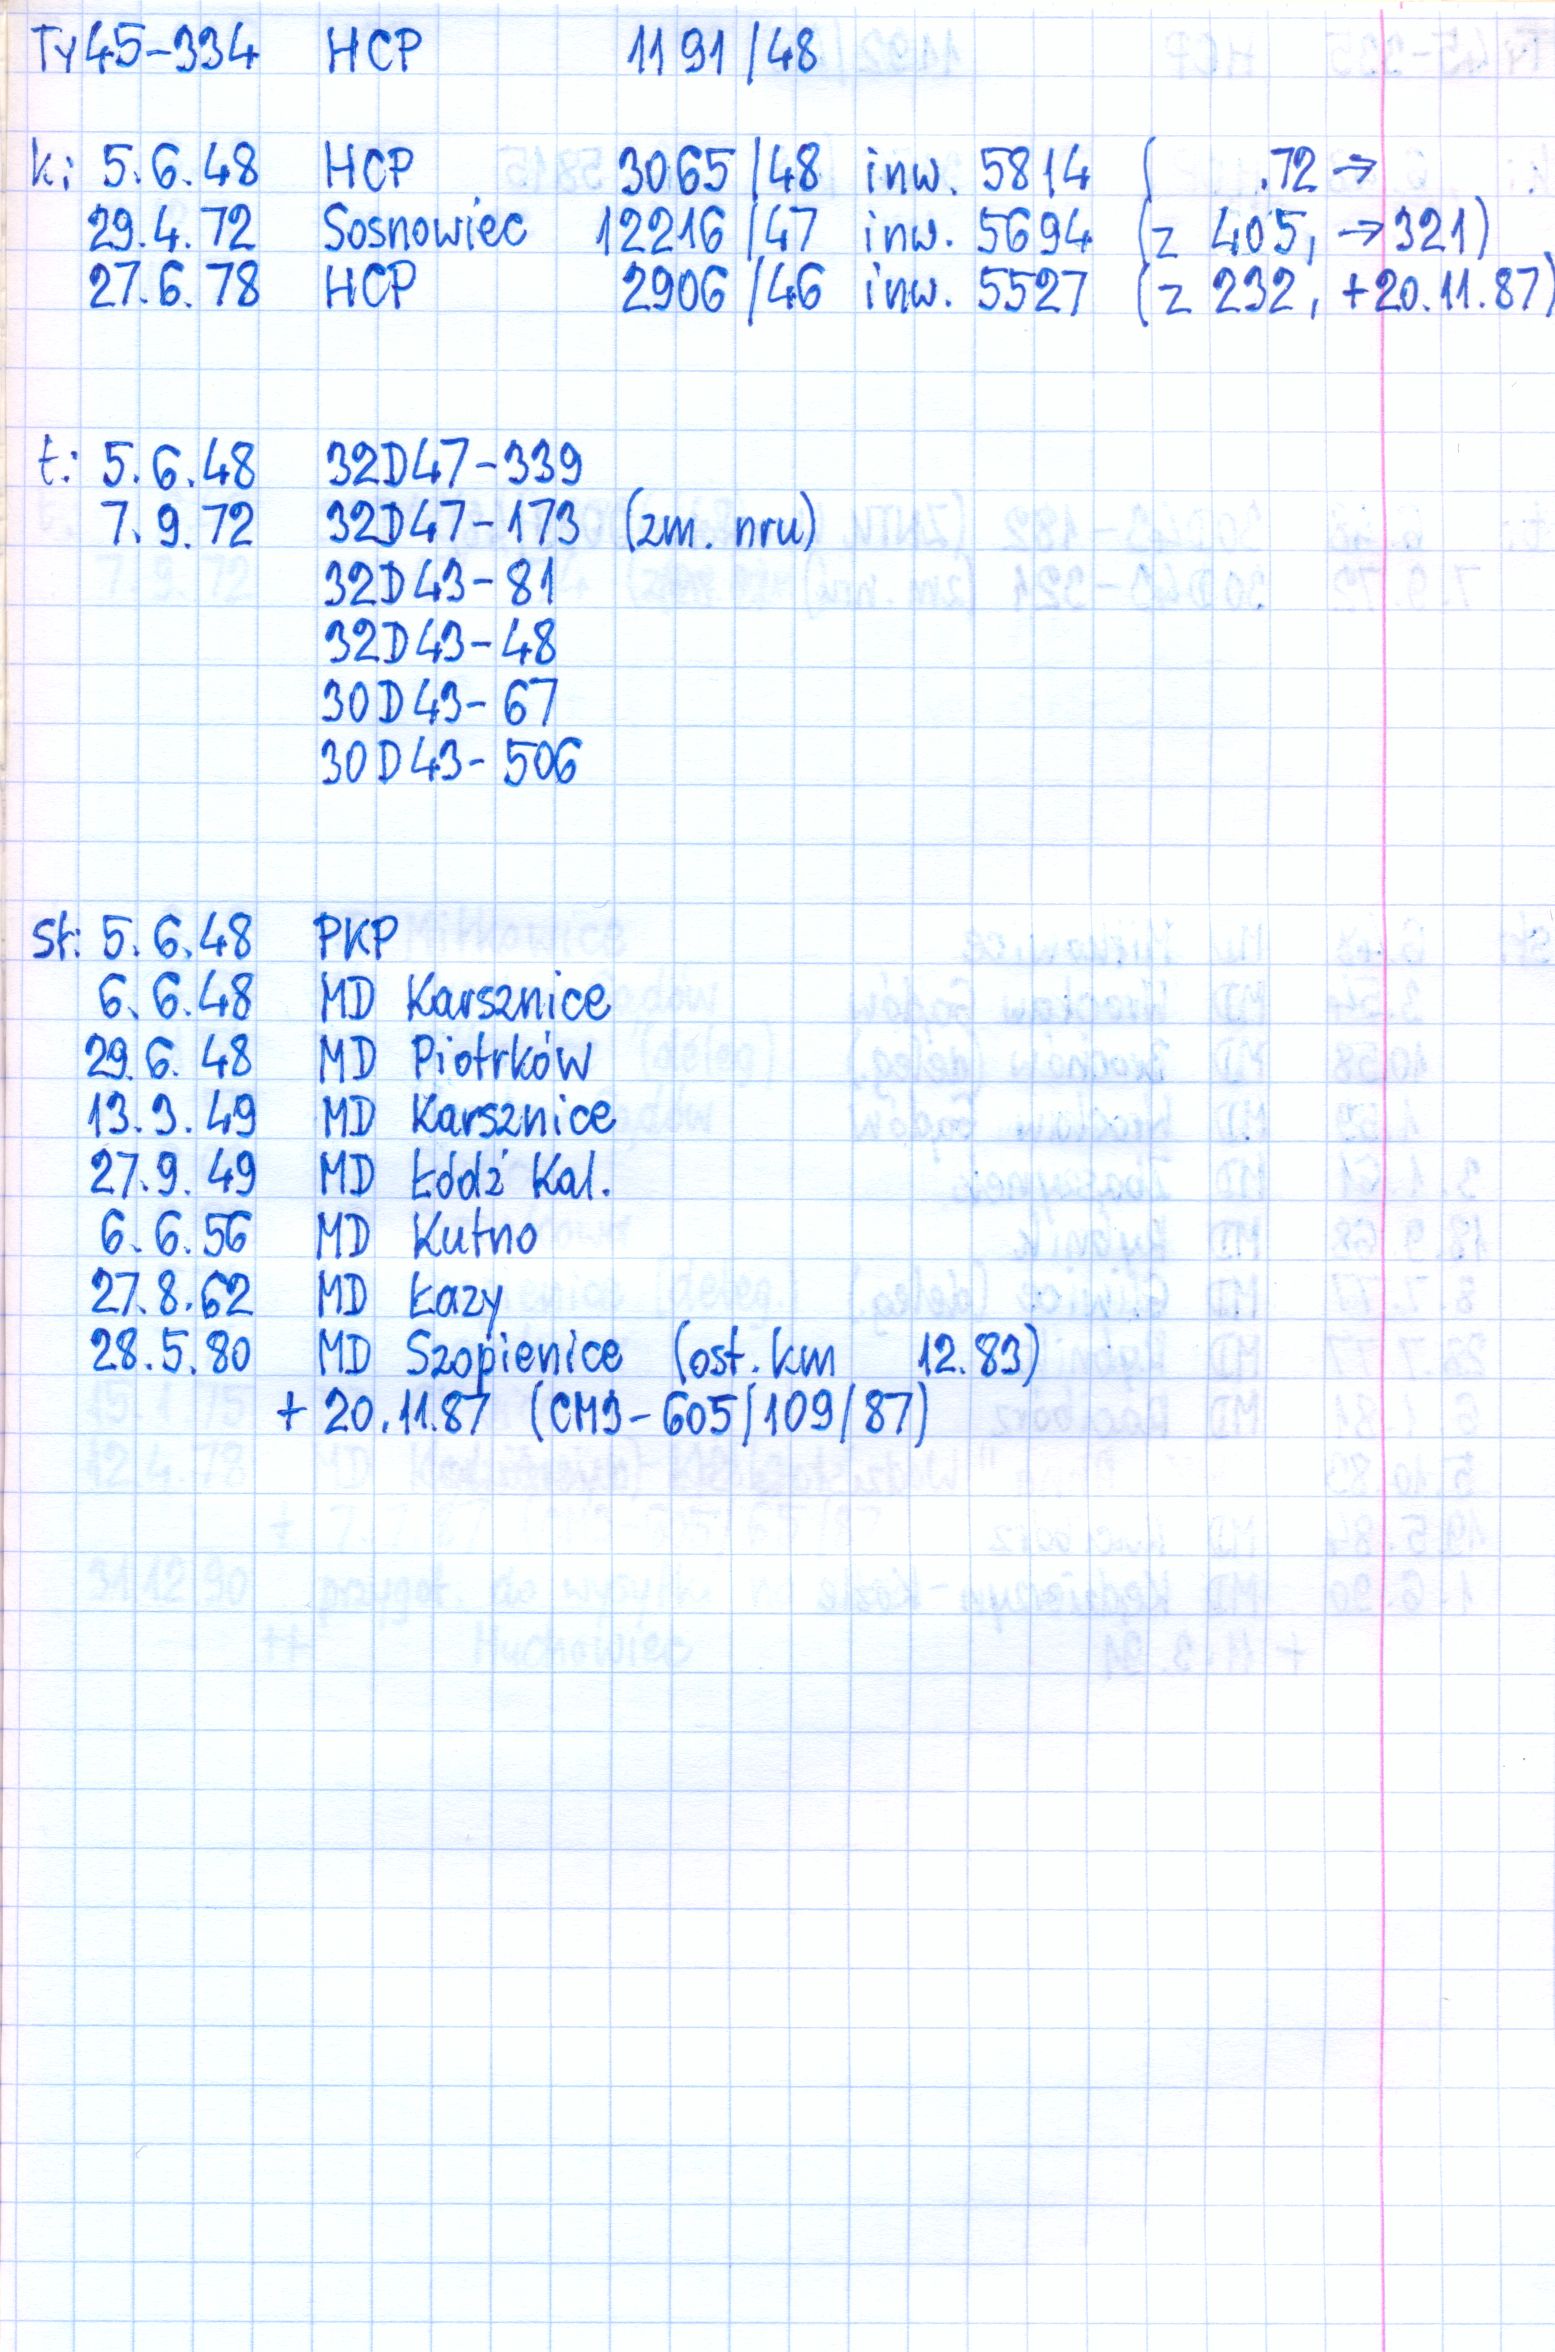 Ty45-334 HCP 1191/48
k: 5.6.48 HCP 3065/48 inw. 5814 ( .72 →
29.4.72 Sosnowiec 12216/47 inw. 5694 (z 405, →321)
27.6.78 HCP 2906/46 inw. 5527 (z 232, +20.11.87)
t: 5.6.48 32D47-339
7.9.72 32D47-173 (zm. nru)
32D43-81
32D43-48
30D43-67
30D43-506
st: 5.6.48 PKP
6.6.48 MD Karsznice
29.6.48 MD Piotrków
13.9.49 MD Karsznice
27.9.49 MD Łódź Kal.
6.6.56 MD Kutno
27.8.62 MD Łazy
28.5.80 MD Szopienice (ost. km 12.83)
+ 20.11.87 (CM9-605/109/87)